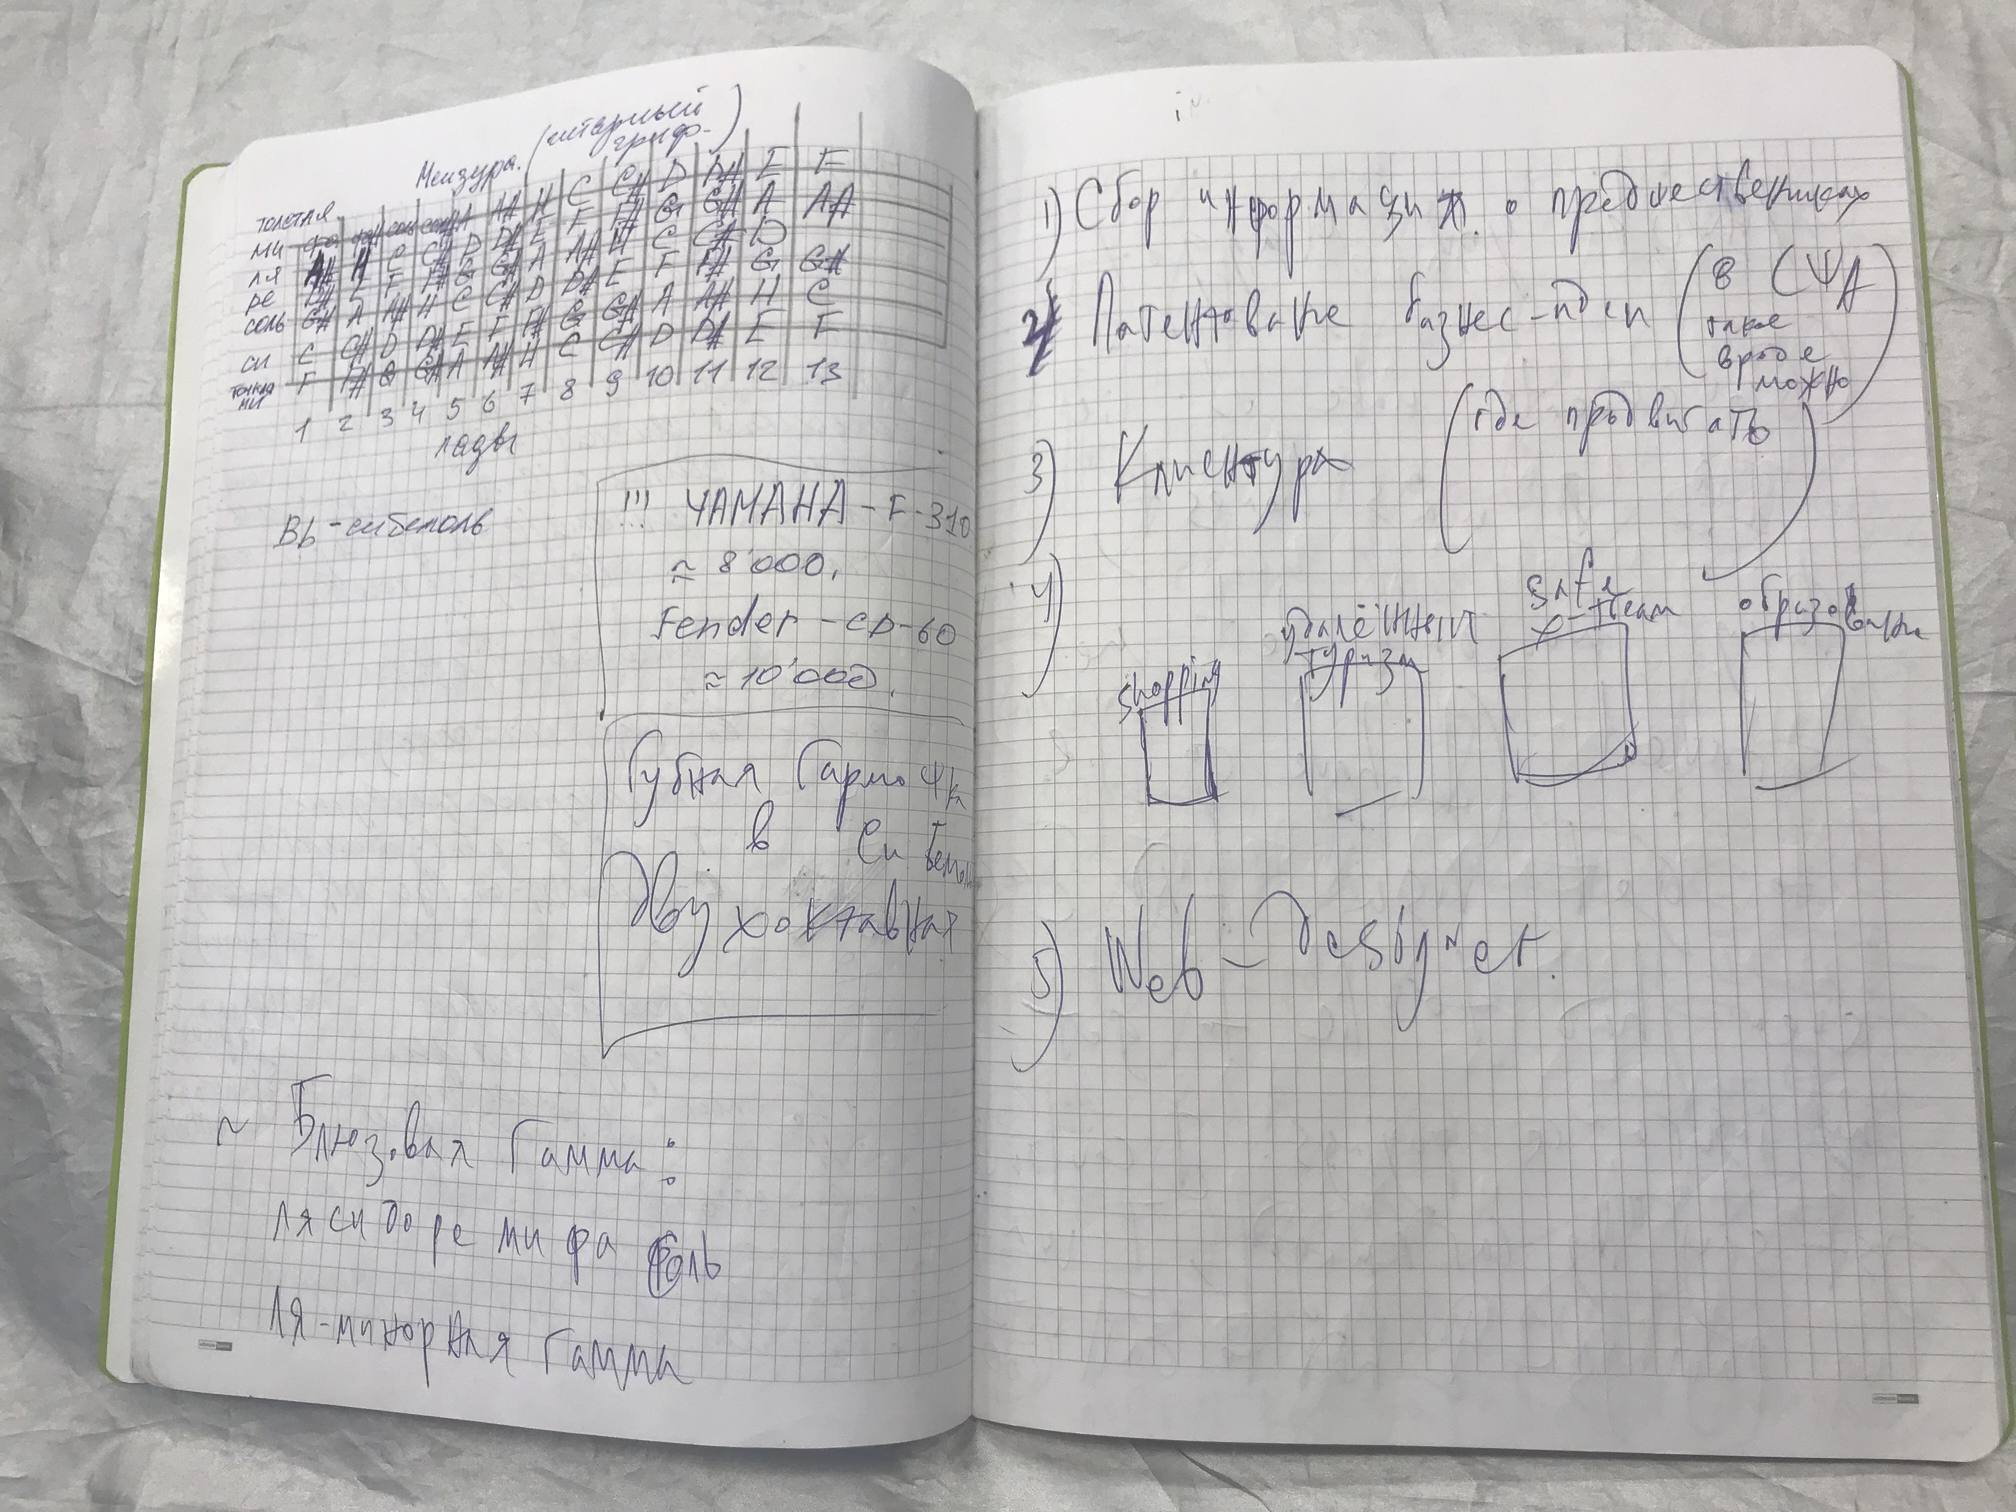 Мензура. (гитарный
гриф.)
толстая
ми фа фа# соль соль# A A# H C C# D D# E F
ля A# H C C# D D# E F F# G G# A A#
ре D# E F F# G G# A A# H C C# D
соль G# A A# H C C# D D# E F F# G G#
си C C# D D# E F F# G G# A A# H C
тонкая
ми F F# G G# A A# H C C# D D# E F
1 2 3 4 5 6 7 8 9 10 11 12 13
лады
Bb - си бемоль
!!! YAMAHA - F-310
≈ 8'000.
Fender - CD-60
≈ 10'000.
Губная Гармошка
в Си Бемоль
Двухоктавная
~ Блюзовая Гамма:
ля си до ре ми фа соль
ля-минорная гамма
1) Сбор информации о предшественниках
2) Патентование бизнес-идеи (в США
такое
вроде
можно)
3) Клиентура (где продвигать)
4)
shopping
удалённый
туризм
safe
x-team
образование
5) Web - Designer.